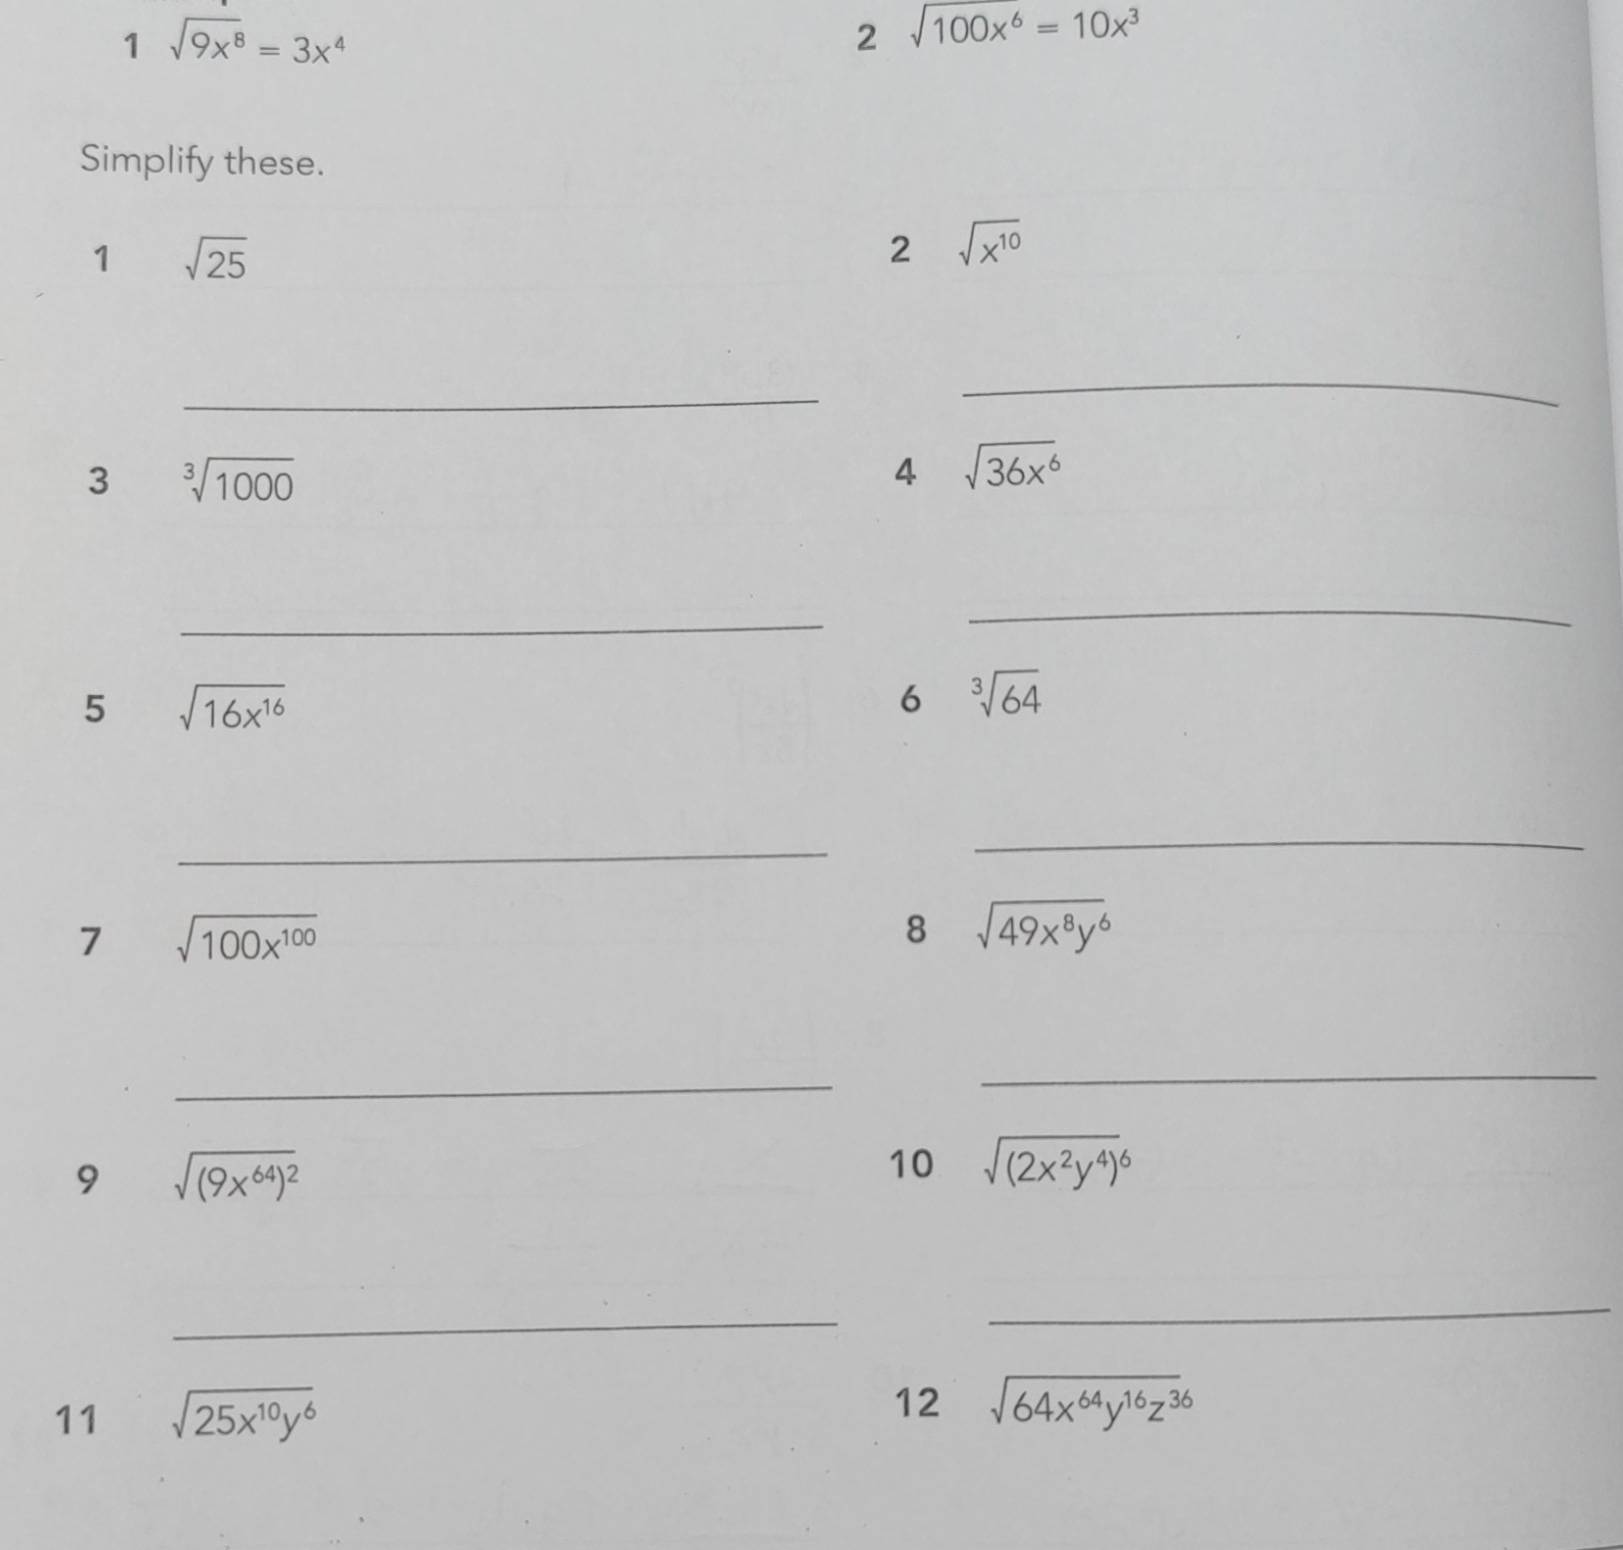 1 √9x⁸ = 3x⁴
2 √100x⁶ = 10x³
Simplify these.
1 √25
2 √x¹⁰
3 ³√1000
4 √36x⁶
5 √16x¹⁶
6 ³√64
7 √100x¹⁰⁰
8 √49x⁸y⁶
9 √(9x⁶⁴)²
10 √(2x²y⁴)⁶
11 √25x¹⁰y⁶
12 √64x⁶⁴y¹⁶z³⁶